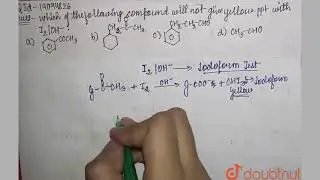 Q Id - 19094826
Ques - which of the following compound will not give yellow ppt with
I2|OH-
a) COCH3 b) O CH2-C-CH3 c) CH2-CH2-CHO d) CH3-CHO
I2|OH- → Iodoform Test
O
g-C-CH3 + I2 OH-→ g-COO- + CHI3↓→ Iodoform
yellow
doubtnut